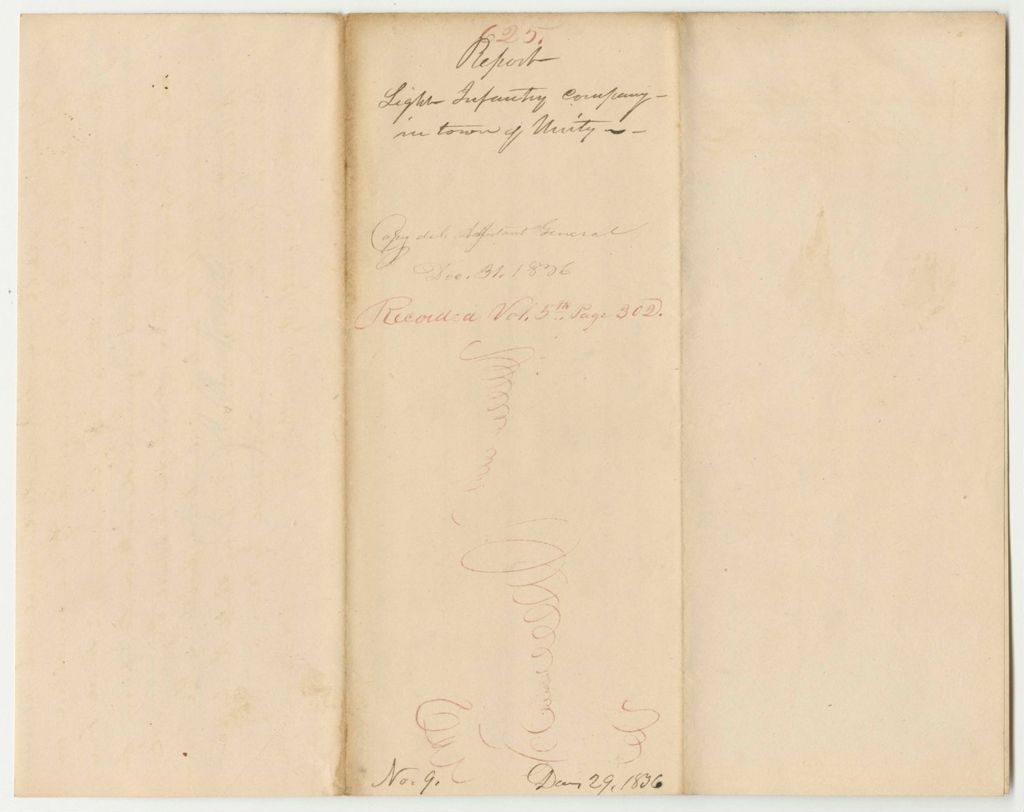 625.
Report
Light Infantry Company -
in town of Unity - -
Copy del. Adjutant General
Dec. 31. 1836
Recorded Vol. 5th. Page 302.
No. 9. Dec 29, 1836